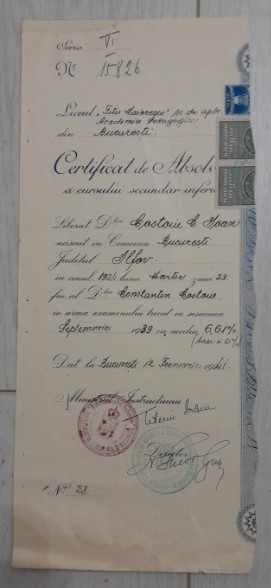 Seria VI
Nº 15826
Liceul "Titu Maiorescu" pe de
Academiei Pedagogice
din Bucuresti
Certificat de Absol
a cursului secundar infer
Liberat Dlui Costoiu C Ioan
nascut in Comuna Bucuresti
Judetul Ilfov
in anul 192 luna Martie ziua 23
fiu al Dlui Constantin Costoiu
in urma examenului trecut in sesiunea
Septemvrie 1939 cu media 6,61%
Dat la Bucuresti 12 Fevruarie 1941
Ministerul Instructiunii
Director
Nº 28